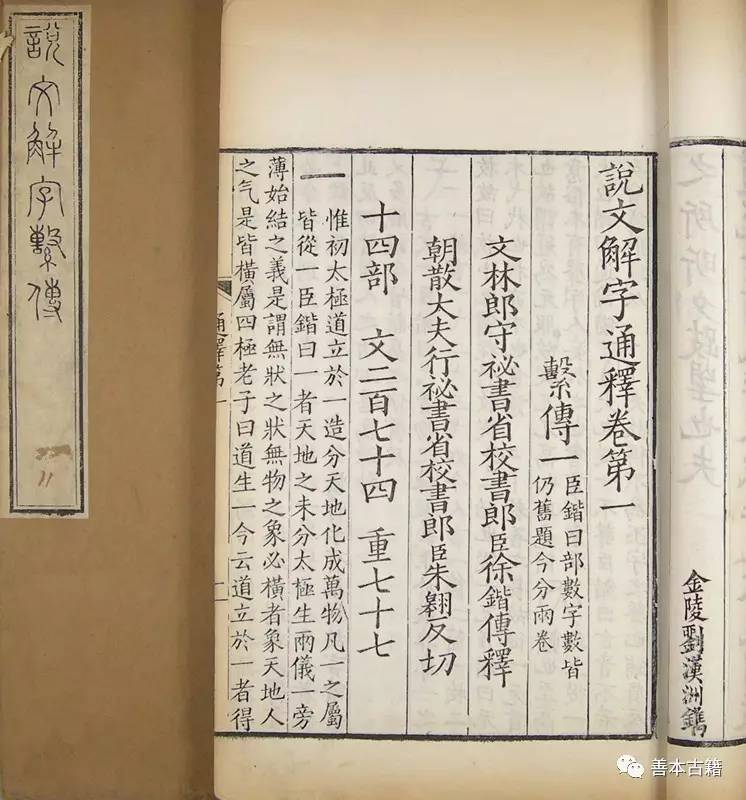 說文解字繫傳
之所昕夕跂望也夫
金陵劉漢洲鐫
說文解字通釋卷第一
繫傳一 臣鍇曰部數字數皆
仍舊題今分兩卷
文林郎守祕書省校書郎臣徐鍇傳釋
朝散大夫行祕書省校書郎臣朱翺反切
十四部 文二百七十四 重七十七
一 惟初太極道立於一造分天地化成萬物凡一之屬
皆從一臣鍇曰一者天地之未分太極生兩儀一旁
薄始結之義是謂無狀之狀無物之象必橫者象天地人
之气是皆橫屬四極老子曰道生一今云道立於一者得
通釋第一
一
善本古籍